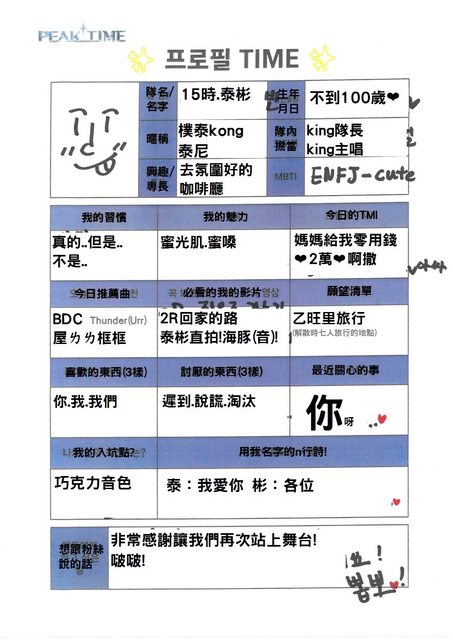 PEAK TIME
프로필 TIME
隊名/名字
15時.泰彬
生年月日
不到100歲❤
暱稱
樸泰kong
泰尼
隊內擔當
king隊長
king主唱
興趣/專長
去氛圍好的
咖啡廳
MBTI
ENFJ-cute
我的習慣
我的魅力
今日的TMI
真的..但是..
不是..
蜜光肌.蜜嗓
媽媽給我零用錢
❤2萬❤啊撒
아싸
今日推薦曲
必看的我的影片
願望清單
BDC Thunder(Urr)
屋ㄌㄌ框框
2R回家的路
泰彬直拍!海豚(音)!
乙旺里旅行
(解散時七人旅行的地點)
喜歡的東西(3樣)
討厭的東西(3樣)
最近關心的事
你.我.我們
遲到.說謊.淘汰
你呀 ..❤
我的入坑點?
用我名字的n行詩!
巧克力音色
泰：我愛你 彬：各位
❤
想跟粉絲
說的話
非常感謝讓我們再次站上舞台!
啵啵!
뽑뽀❤!